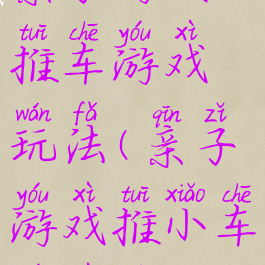 tuī chē yóu xì
推车游戏
wán fǎ qīn zǐ
玩法(亲子
yóu xì tuī xiǎo chē
游戏推小车